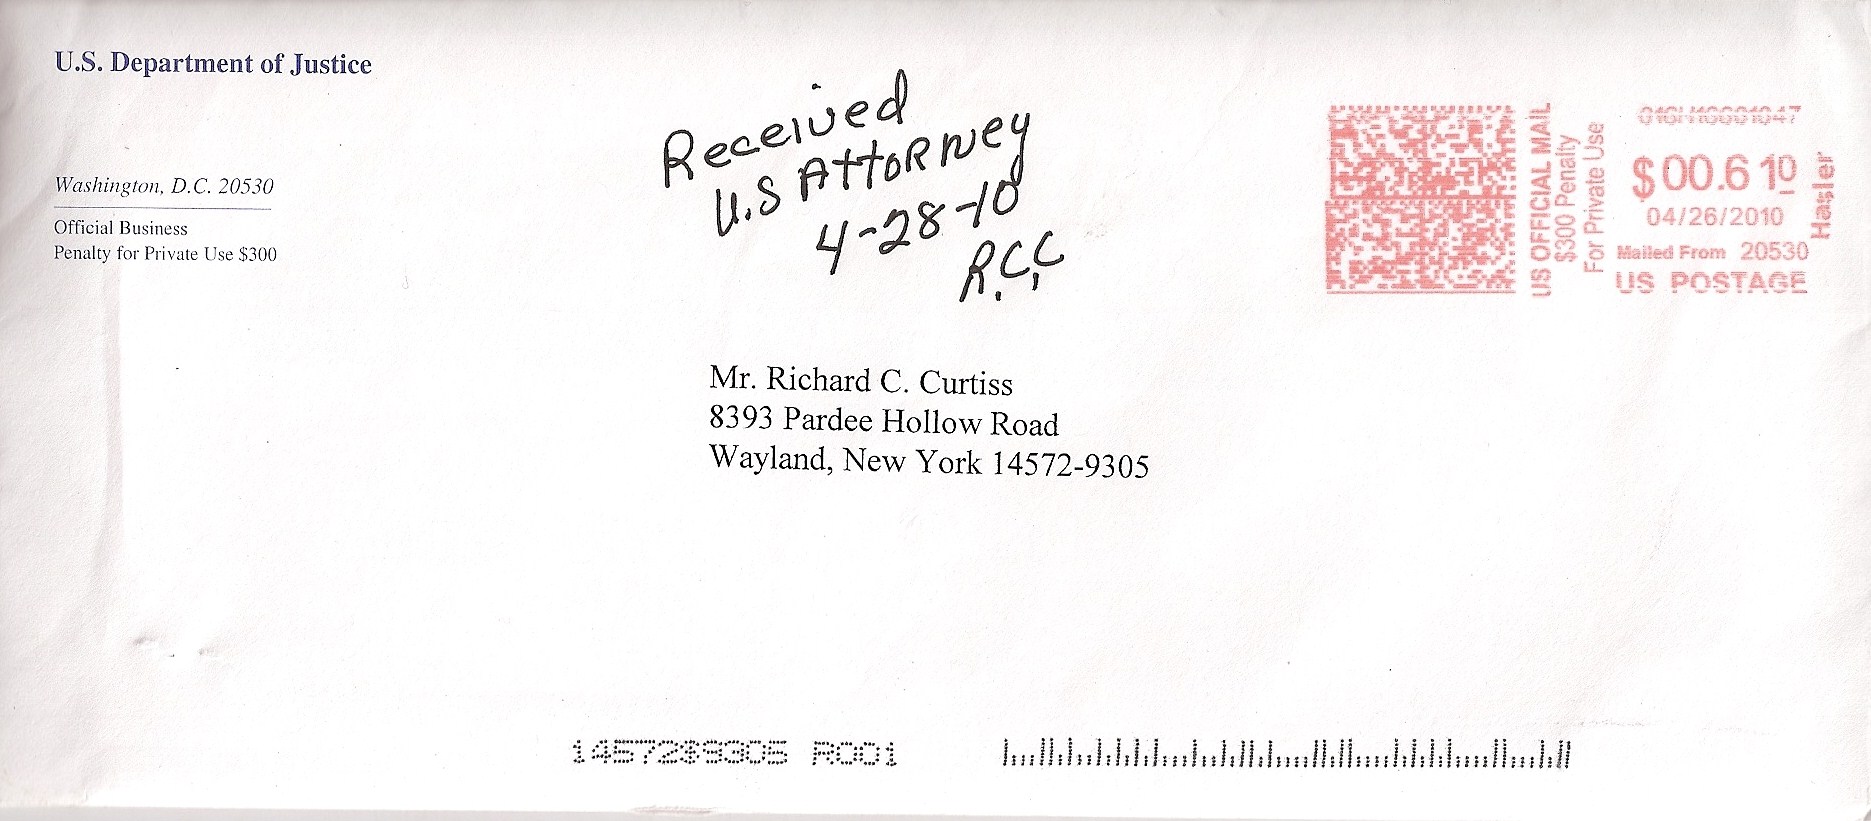 U.S. Department of Justice
Washington, D.C. 20530
Official Business
Penalty for Private Use $300
Received
U.S Attorney
4-28-10
R.C.C
US OFFICIAL MAIL
$300 Penalty
For Private Use
$00.610
04/26/2010
Mailed From 20530
US POSTAGE
Hasler
Mr. Richard C. Curtiss
8393 Pardee Hollow Road
Wayland, New York 14572-9305
R001